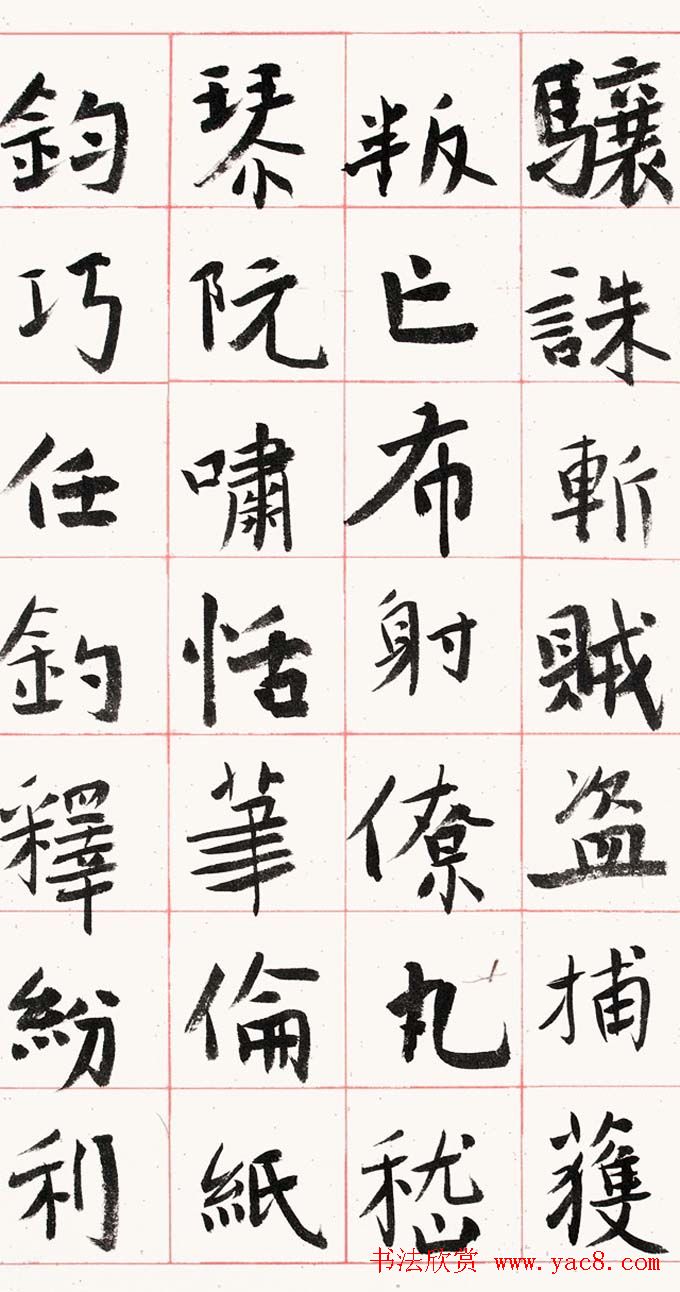 驤誅斬賊盗捕獲
叛亡布射僚丸嵇
琴阮嘯恬筆倫紙
鈞巧任釣釋紛利
书法欣赏 www.yac8.com